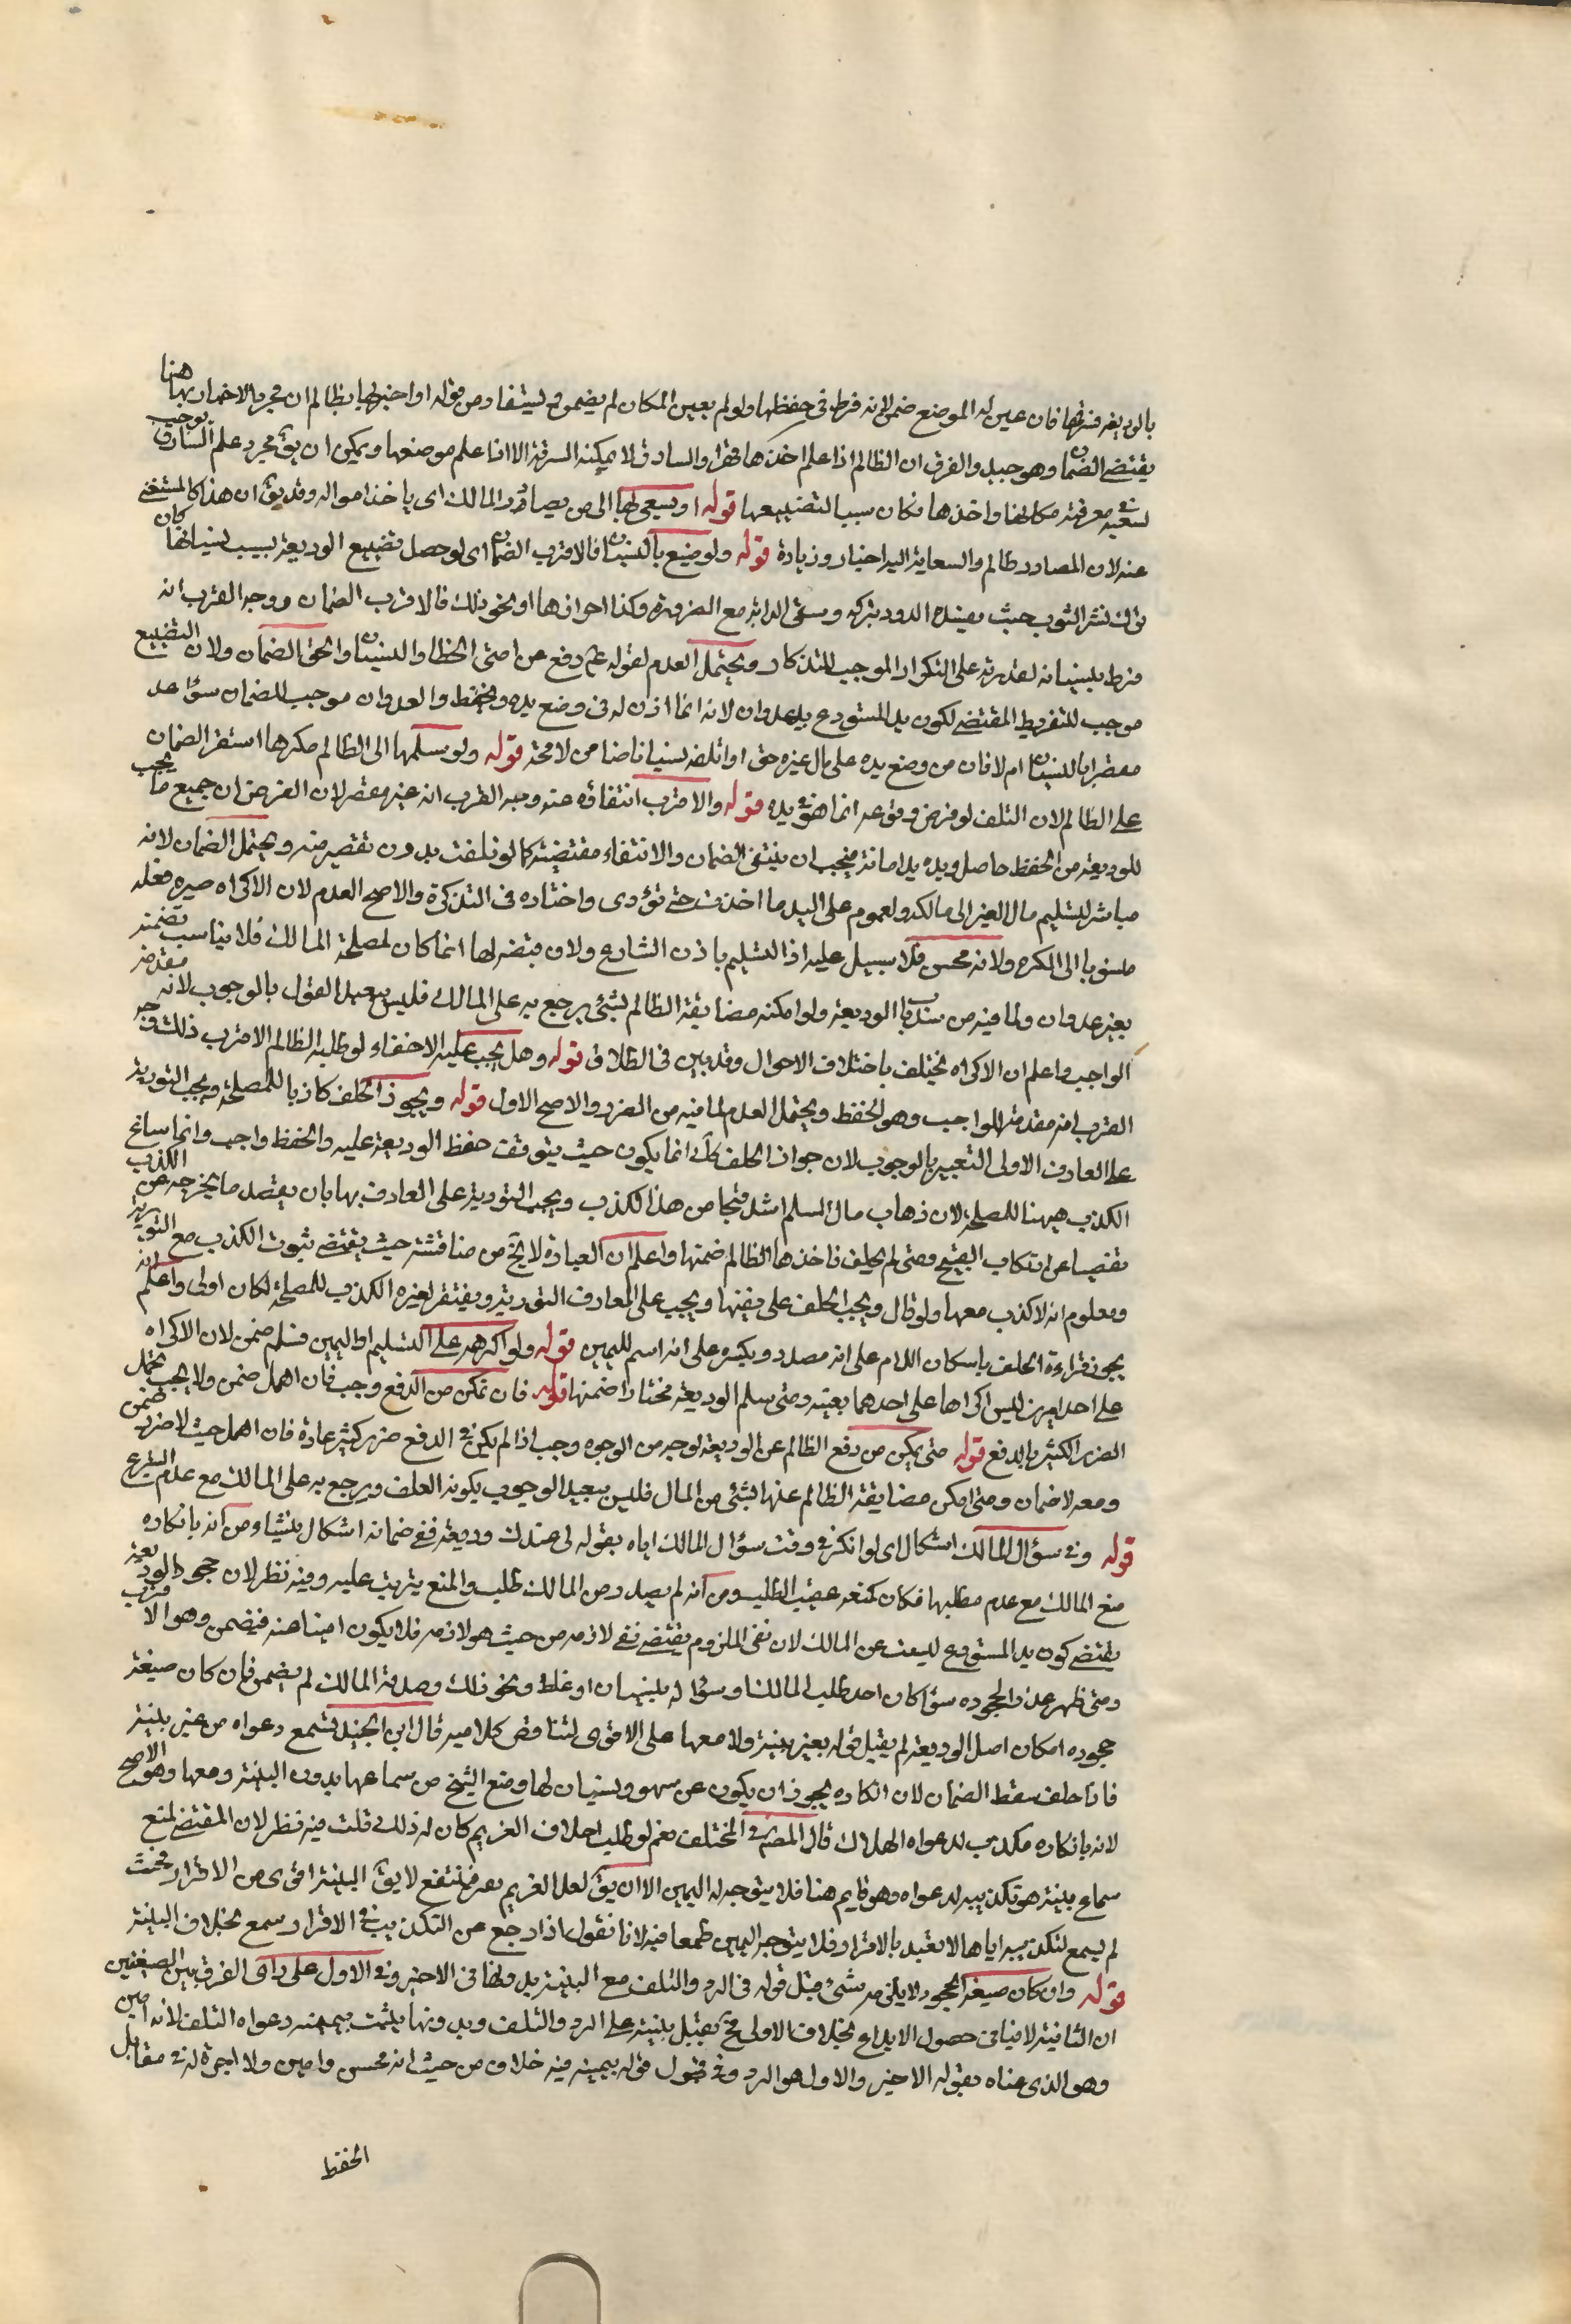 بالوديعة فسرقها فان عين له الموضع ضمن لانه فرط فى حفظها ولو لم يعين المكان لم يضمن ويستفاد من قوله او اخبر بها ظالم ان مجرد الاخبار بها هنا
يقتضى الضمان وهو جيد والفرق ان الظالم اذا علم اخذها قهرا والسارق لا يمكنه السرقة الا اذا علم موضعها ويمكن ان يق مجرد علم السارق يوجب
سعيه فى معرفة مكانها واخذها فكان سببا لتضييعها قوله او يسعى بها الى من يصادر المالك اى ياخذ امواله وقد يق ان هذا كالمستغنى
عنه لان المصادر ظالم والسعاية اليه اخبار وزيادة قوله ولو ضيع بالنسيان فالاقرب الضمان اى لو حصل تضييع الوديعة بسبب نسيانها كان
ترك نشر الثوب حيث يفسده الدود بتركه وسقى الدابة مع الضرورة وكذا احرازها او نحو ذلك فالاقرب الضمان ووجه القرب انه
فرط بنسيانه لقدرته على التكرار الموجب للتذكار ويحتمل العدم لقوله عم رفع عن امتى الخطا والنسيان والحق الضمان ولان التضييع
موجب للتفريط المقتضى لكون يد المستودع يد عدوان لانه انما اذن له فى وضع يده والحفظ والعدوان موجب للضمان سواء عد
مقصرا بالنسيان ام لا فان من وضع يده على مال غيره حق او اتلفه نسيانا ضامن لا محة قوله ولو سلمها الى الظالم مكرها استقر الضمان
على الظالم لان التلف لو فرض وقوعه انما هو فى يده قوله والاقرب انتفاؤه عنه وجه القرب انه غير مقصر لان الغرض ان جميع ما يجب
للوديعة من الحفظ حاصل ويده يد امانة فيجب ان ينتفى الضمان والانتفاء مقتضيه كما لو تلفت بدون تقصير منه ويحتمل الضمان لانه
مباشر لتسليم مال الغير الى غير مالكه ولعموم على اليد ما اخذت حتى تؤدى واختاره فى التذكرة والاصح العدم لان الاكراه صير فعله
منسوبا الى المكره ولانه محسن فلا سبيل عليه اذ التسليم باذن الشارع ولان قبضه لها انما كان لمصلحة المالك فلا يناسب تضمينه
بغير عدوان ولما فيه من سد باب الوديعة ولو امكنه مضايقة الظالم بشئ يرجع به على المالك فليس ببعيد القول بالوجوب لانه مقدمة
الواجب واعلم ان الاكراه يختلف باختلاف الاحوال وقد بين فى الطلاق قوله وهل يجب عليه الاختفاء لو طلبه الظالم الاقرب ذلك وجه
القرب انه مقدمة للواجب وهو الحفظ ويحتمل العدم لما فيه من الضرر والاصح الاول قوله ويجوز الحلف كاذبا للمصلحة ويجب التورية
على العارف الاولى التعبير بالوجوب لان جواز الحلف كاذبا انما يكون حيث يتوقف حفظ الوديعة عليه والحفظ واجب وانما ساغ
الكذب هيهنا للمصلحة لان ذهاب مال المسلم اشد قبحا من هذا الكذب ويجب التورية على العارف بها بان يقصد ما يخرجه عن الكذب
تفصيا عن ارتكاب القبيح ومتى لم يحلف فاخذها الظالم ضمنها واعلم ان العبارة لا تخ من مناقشة حيث يقتضى ثبوت الكذب مع التورية
ومعلوم انه لا كذب معها ولو قال ويجب الحلف على نفيها ويجب على العارف التورية ويغتفر لغيره الكذب للمصلحة لكان اولى واعلم انه
يجوز قراءة الحلف باسكان اللام على انه مصدر وبكسره على انه اسم لليمين قوله ولو اكرهه على التسليم او اليمين فسلم ضمن لان الاكراه
على احد امرين ليس اكراها على احدهما بعينه ومتى سلم الوديعة مختارا ضمنها قوله فان تمكن من الدفع وجب فان اهمل ضمن ولا يجب تحمل
الضرر الكثير بالدفع قوله متى يمكن من دفع الظالم عن الوديعة بوجه من الوجوه وجب اذا لم يكن فى الدفع ضرر كثير عادة فان اهمل حيث لا ضرر ضمن
ومعه لا ضمان ومتى امكن مضايقة الظالم عنها بشئ من المال فليس ببعيد الوجوب بكونه العلف ويرجع به على المالك مع عدم التبرع
قوله وفى سؤال المالك اشكال اى لو انكر فى وقت سؤال المالك اياه بقوله لى عندك وديعة ففى ضمانه اشكال ينشاء من انه بانكاره
منع المالك مع عدم مطلبها فكان كمنعه عقيب الطلب ومن انه لم يصدر من المالك طلب والمنع يترتب عليه وفيه نظر لان جحود الوديعة
يقتضى كون يد المستودع ليست عن المالك لان نفى الملزوم يقتضى نفى لازمه من حيث هو لازمه فلا يكون امينا عنه فيضمن وهو الاقرب
ومتى ظهر عذرا لجحوده سواء كان احد طلب المالك او سؤاله بنسيان او غلط ونحو ذلك وصدقه المالك لم يضمن فان كان صيغة
جحوده انكار اصل الوديعة لم يقبل قوله بغير بينة ولا معها على الاقوى لتناقض كلاميه قال ابن الجنيد تسمع دعواه من غير بينة
فاذا حلف سقط الضمان لان انكاره يجوز ان يكون عن سهو ونسيان لها ومنع الشيخ من سماعها بدون البينة ومعها وهو الاصح
لانه بانكاره مكذب لدعواه الهلاك قال المصنف فى المختلف نعم لو طلب احلاف الغريم كان له ذلك قلت فيه نظر لان المقتضى لمنع
سماع بينته هو تكذيبه لدعواه وهو قايم هنا فلا يتوجه له اليمين الا ان يق لعل الغريم يعرف فينتفع لا يق البينة اقوى من الاقرار فحيث
لم يسمع لتكذيبه اياها لا تفيد بالاقرار فلا يتوجه اليمين طمعا فيه لانا نقول اذا رجع عن التكذيب فى الاقرار سمع بخلاف البينة
قوله وان كان صيغة الجحود لا يلزمه شئ قبل قوله فى الرد والتلف مع البينة بدونها فى الاخير وفى الاول على راى الفرق بين الصيغتين
ان الثانية لا ينافى حصول الايداع بخلاف الاولى فح يقبل بينته على الرد والتلف وبدونها يثبت بيمينه دعواه التلف لانه امين
وهو الذى عناه بقوله الاخير والاول هو الرد وفى قبول قوله بيمينه فيه خلاف من حيث انه محسن وامين ولا اجرة له فى مقابل
الحفظ